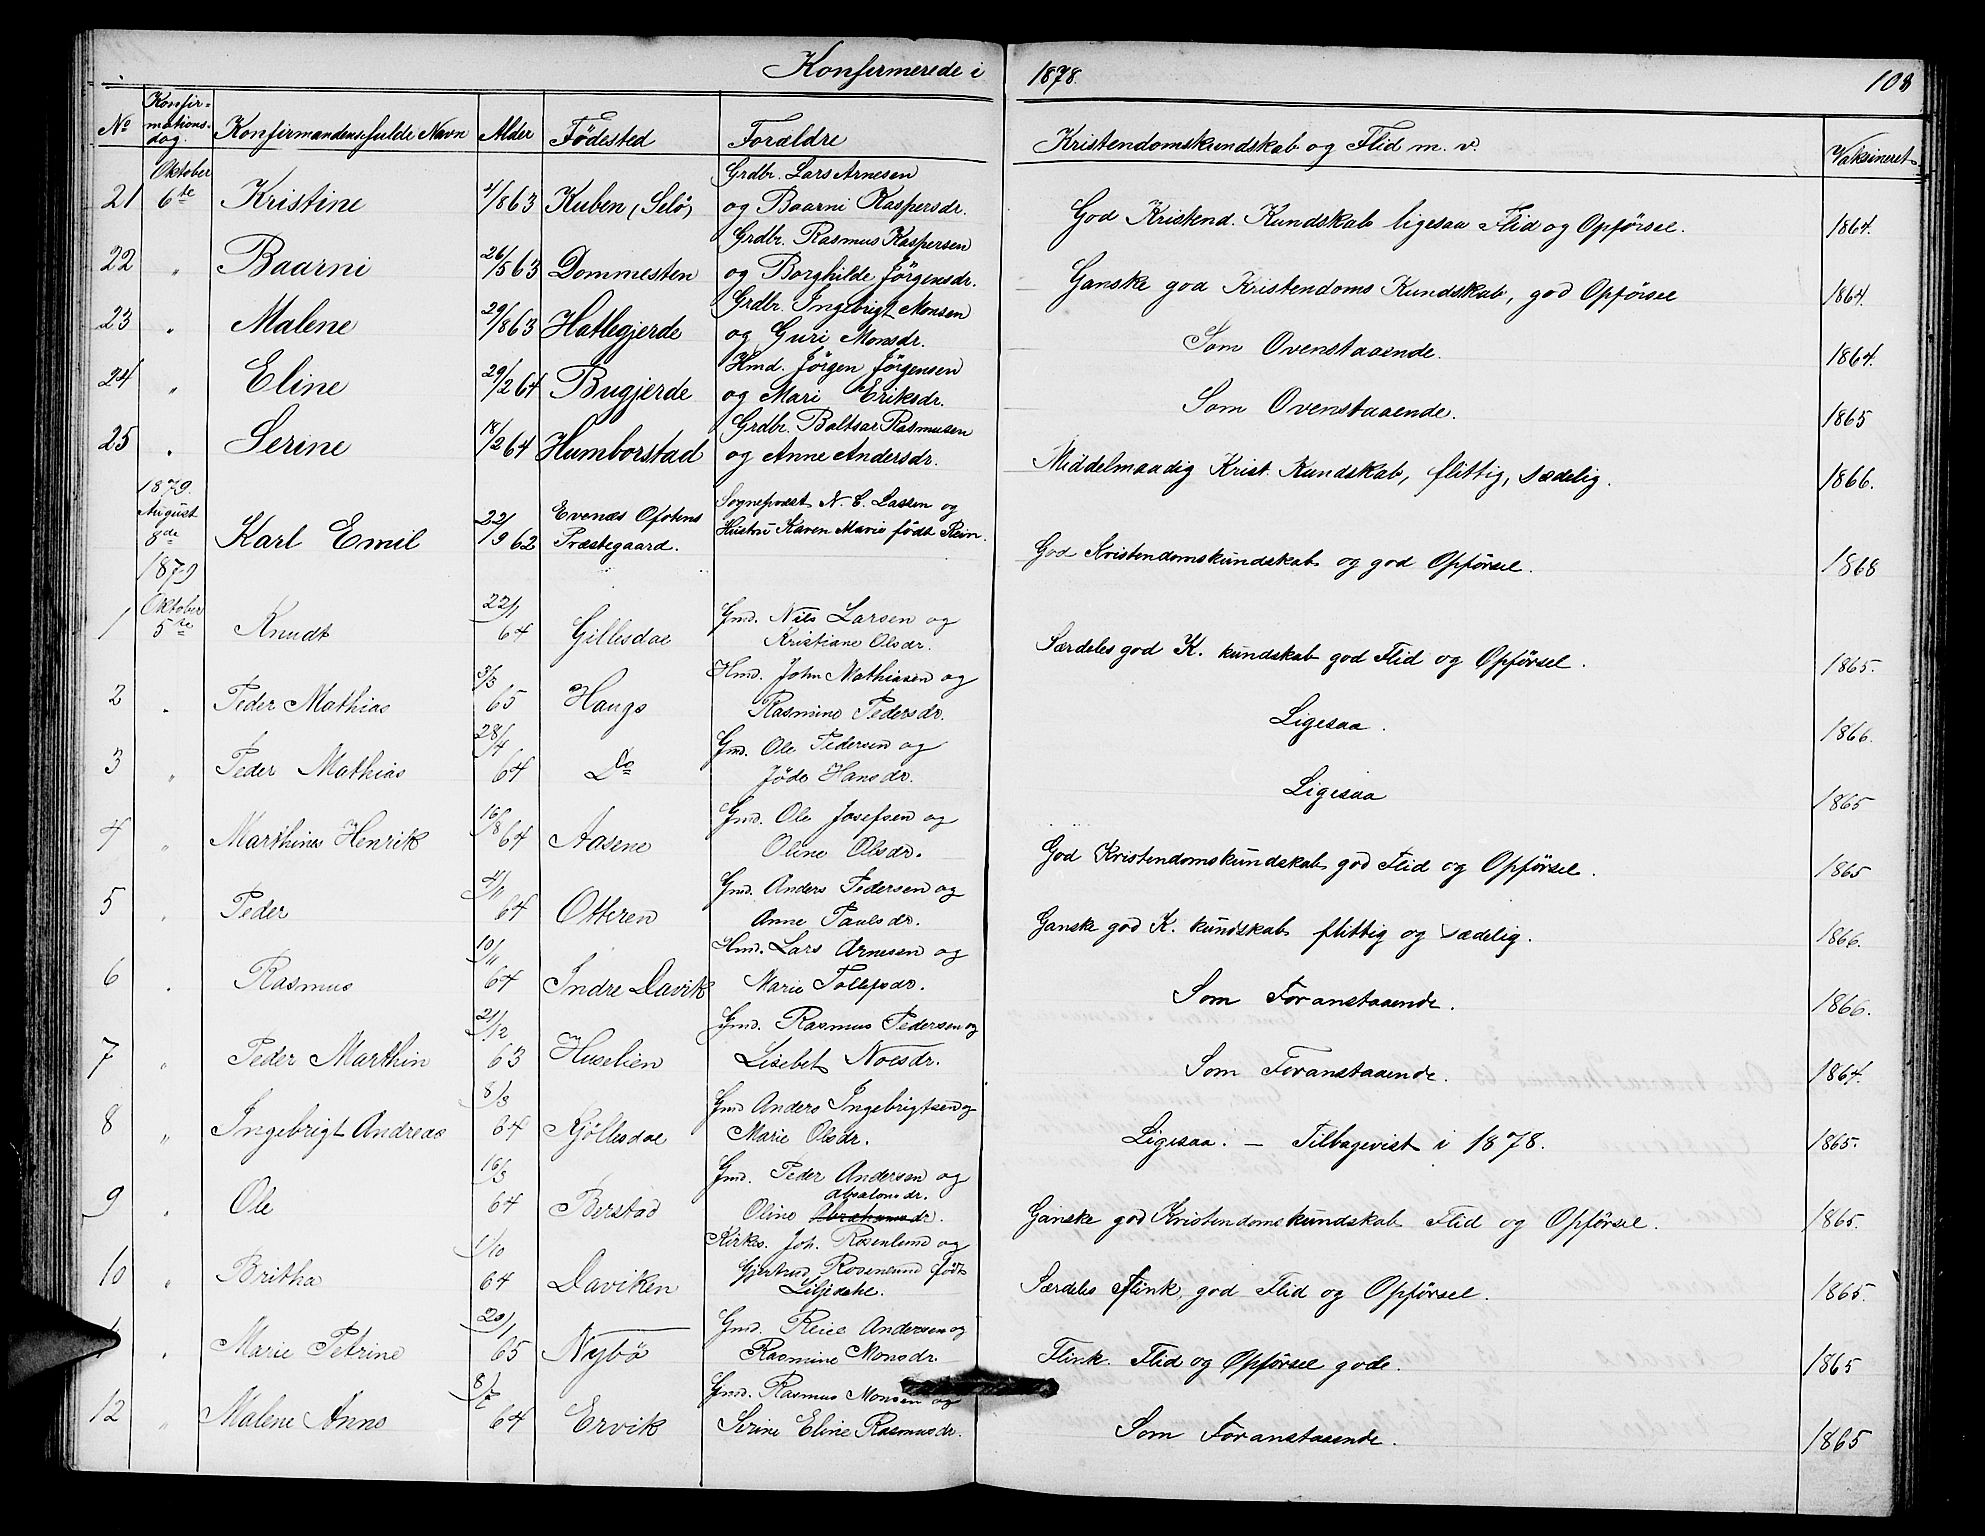 Konfirmerede i 1878. 108
No Konfirmationsdag. Konfirmandens fulde Navn Alder Fødested Forældre Kristendomskundskab og Flid m. v. Vaksineret
Oktober Grdbr. Lars Arnesen
21 6te Kristine 4/8 63 Kuben (Selø) og Baarni Kaspersdr. God Kristend. Kundskab ligesaa Flid og Opførsel. 1864.
Grdbr. Rasmus Kaspersen
22 " Baarni 26/5 63 Dommesten og Borghilde Jørgensdr. Ganske god Kristendoms Kundskab, god Opførsel 1864.
Grdbr. Ingebrigt Monsen
23 " Malene 29/8 63 Hatlegjerde og Guri Monsdr. Som Ovenstaaende. 1864.
Hmd. Jørgen Jørgensen
24 " Eline 29/2 64 Bugjerde og Mari Eriksdr. Som Ovenstaaende. 1865
Grdbr. Baltsar Rasmusen
25 " Serine 18/2 64 Humborstad og Anne Andersdr. Middelmaadig Krist. Kundskab, flittig, sædelig. 1866.
1879.
August Evenæs Ofotens Sogneprest N. C. Lassen og
8de Karl Emil 22/9 62 Præstegaard. Hustru Karen Marie født Rein. God Kristendomskundskab og god Opførsel. 1868
1879
Oktober 22/1 Gmd. Nils Larsen og
1 5te Knudt 64 Gillesdal Kristiane Olsdr. Særdeles god K. kundskab god Flid og Opførsel. 1865.
3/3 Hmd. John Mathiasen og
2 " Peder Mathias 65 Haugs Rasmine Pedersdr. Ligesaa. 1866.
28/4 Gmd. Ole Pedersen og
3 " Peder Mathias 64 Do Jøde Hansdr. Ligesaa 1865
16/8 Gmd. Ole Josefsen og
4 " Marthines Henrik 64 Aasene Oline Olsdr. God Kristendomskundskab god Flid og Opførsel. 1865
4/11 Gmd. Anders Pedersen og
5 " Peder 64 Otteren Anne Paulsdr. Ganske god K. kundskab flittig og sædelig. 1866.
10/11 Hmd. Lars Arnesen og
6 " Rasmus 64 Indre Davik Marie Tollefsdr. Som Foranstaaende. 1866.
21/12 Gmd. Rasmus Pedersen og
7 " Peder Marthin 63 Huselien Lisebet Noesdr. Som Foranstaaende. 1864.
8/3 Gmd Anders Ingebrigtsen og
8 " Ingebrigt Andreas 64 Kjøllesdal Marie Olsdr. Ligesaa. – Tilbagevist i 1878. 1865.
16/3 Gmd. Peder Andersen og
Absalonsdr.
9 " Ole 64 Berstad Oline Abrahamsdr. Ganske god Kristendomskundskab Flid og Opførsel. 1865.
1/10 Kirkes. Joh. Rosenlund og
10 " Britha 64 Daviken Gjertrud Rosenlund født Særdeles flink, god Flid og Opførsel. 1865.
Liljedahl.
20/1 Gmd. Reiel Andersen og
" Marie Petrine 65 Nybø Rasmine Monsdr. Flink. Flid og Opførsel gode. 1865
Gmd. Rasmus Monsen og
12 " Malene Anne 64 Ervik Serine Eline Rasmusdr. Som Foranstaaende. 1865